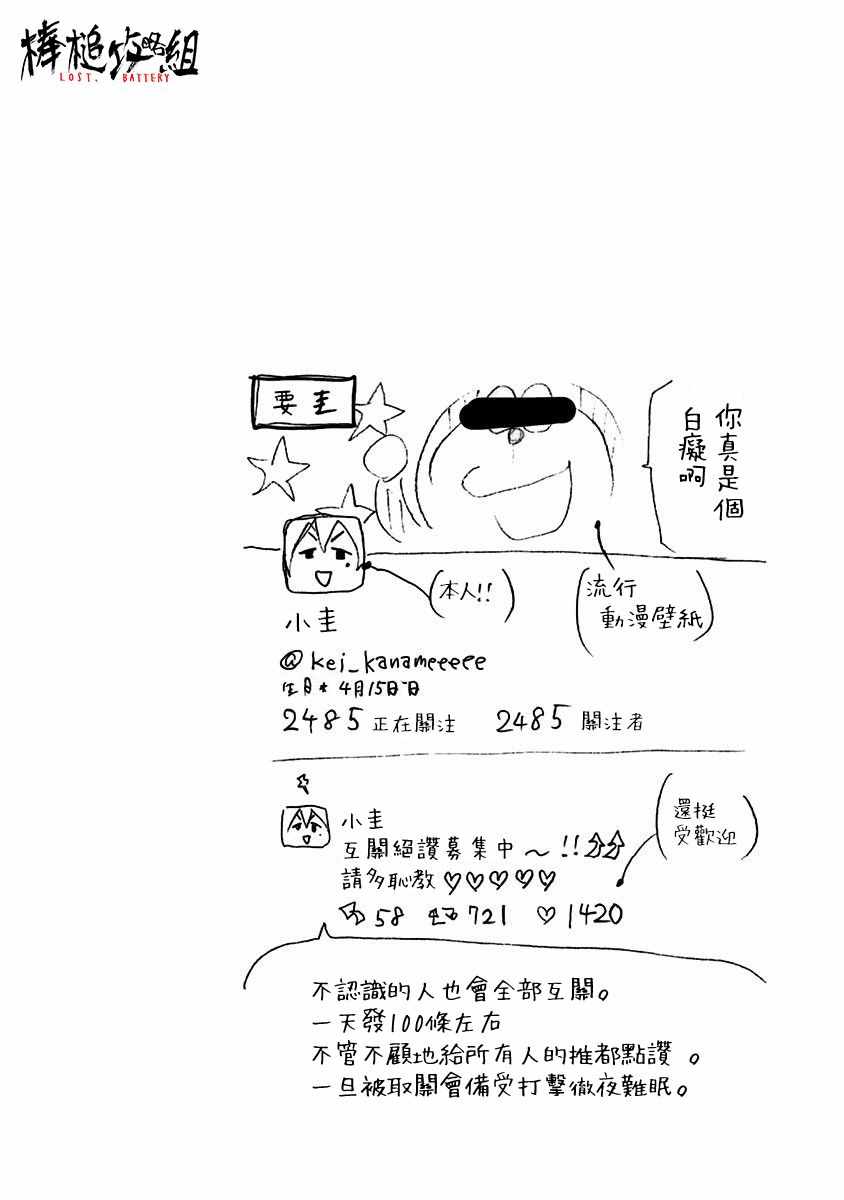 棒槌攻略組
LOST. BATTERY
要圭
你真是個
白癡啊
(本人!!)
(流行
動漫壁紙)
小圭
@kei_kanameeeee
生日★ 4月15日
2485 正在關注 2485 關注者
小圭
互關絕讚募集中～!!
請多恥教♡♡♡♡♡
58 721 ♡1420
(還挺
受歡迎)
不認識的人也會全部互關。
一天發100條左右
不管不顧地給所有人的推都點讚。
一旦被取關會備受打擊徹夜難眠。